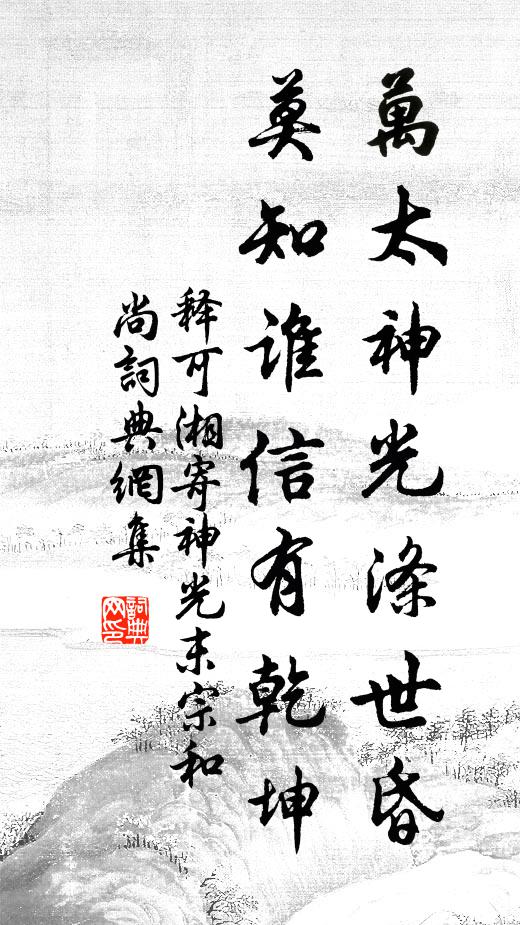 萬太神光滌世昏
莫知誰信有乾坤
释可湘寄神光末宗和
尚詞典網集
詞典
网印